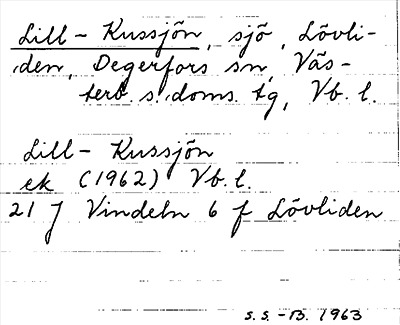 Lill-Kussjön, sjö, Lövli-
den, Degerfors sn, Väs-
terb. s. doms. tg, Vb. l.
Lill-Kussjön
ek (1962) Vb. l.
21 J Vindeln 6 f Lövliden
S.S.-B. 1963